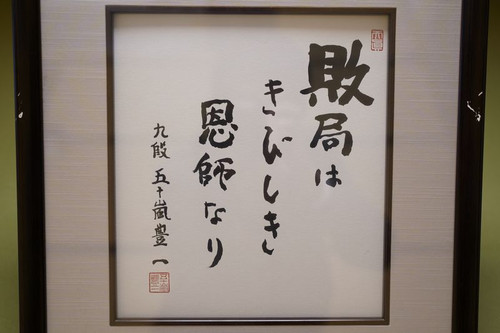 敗局は
きびしき
恩師なり
九段 五十嵐豊一